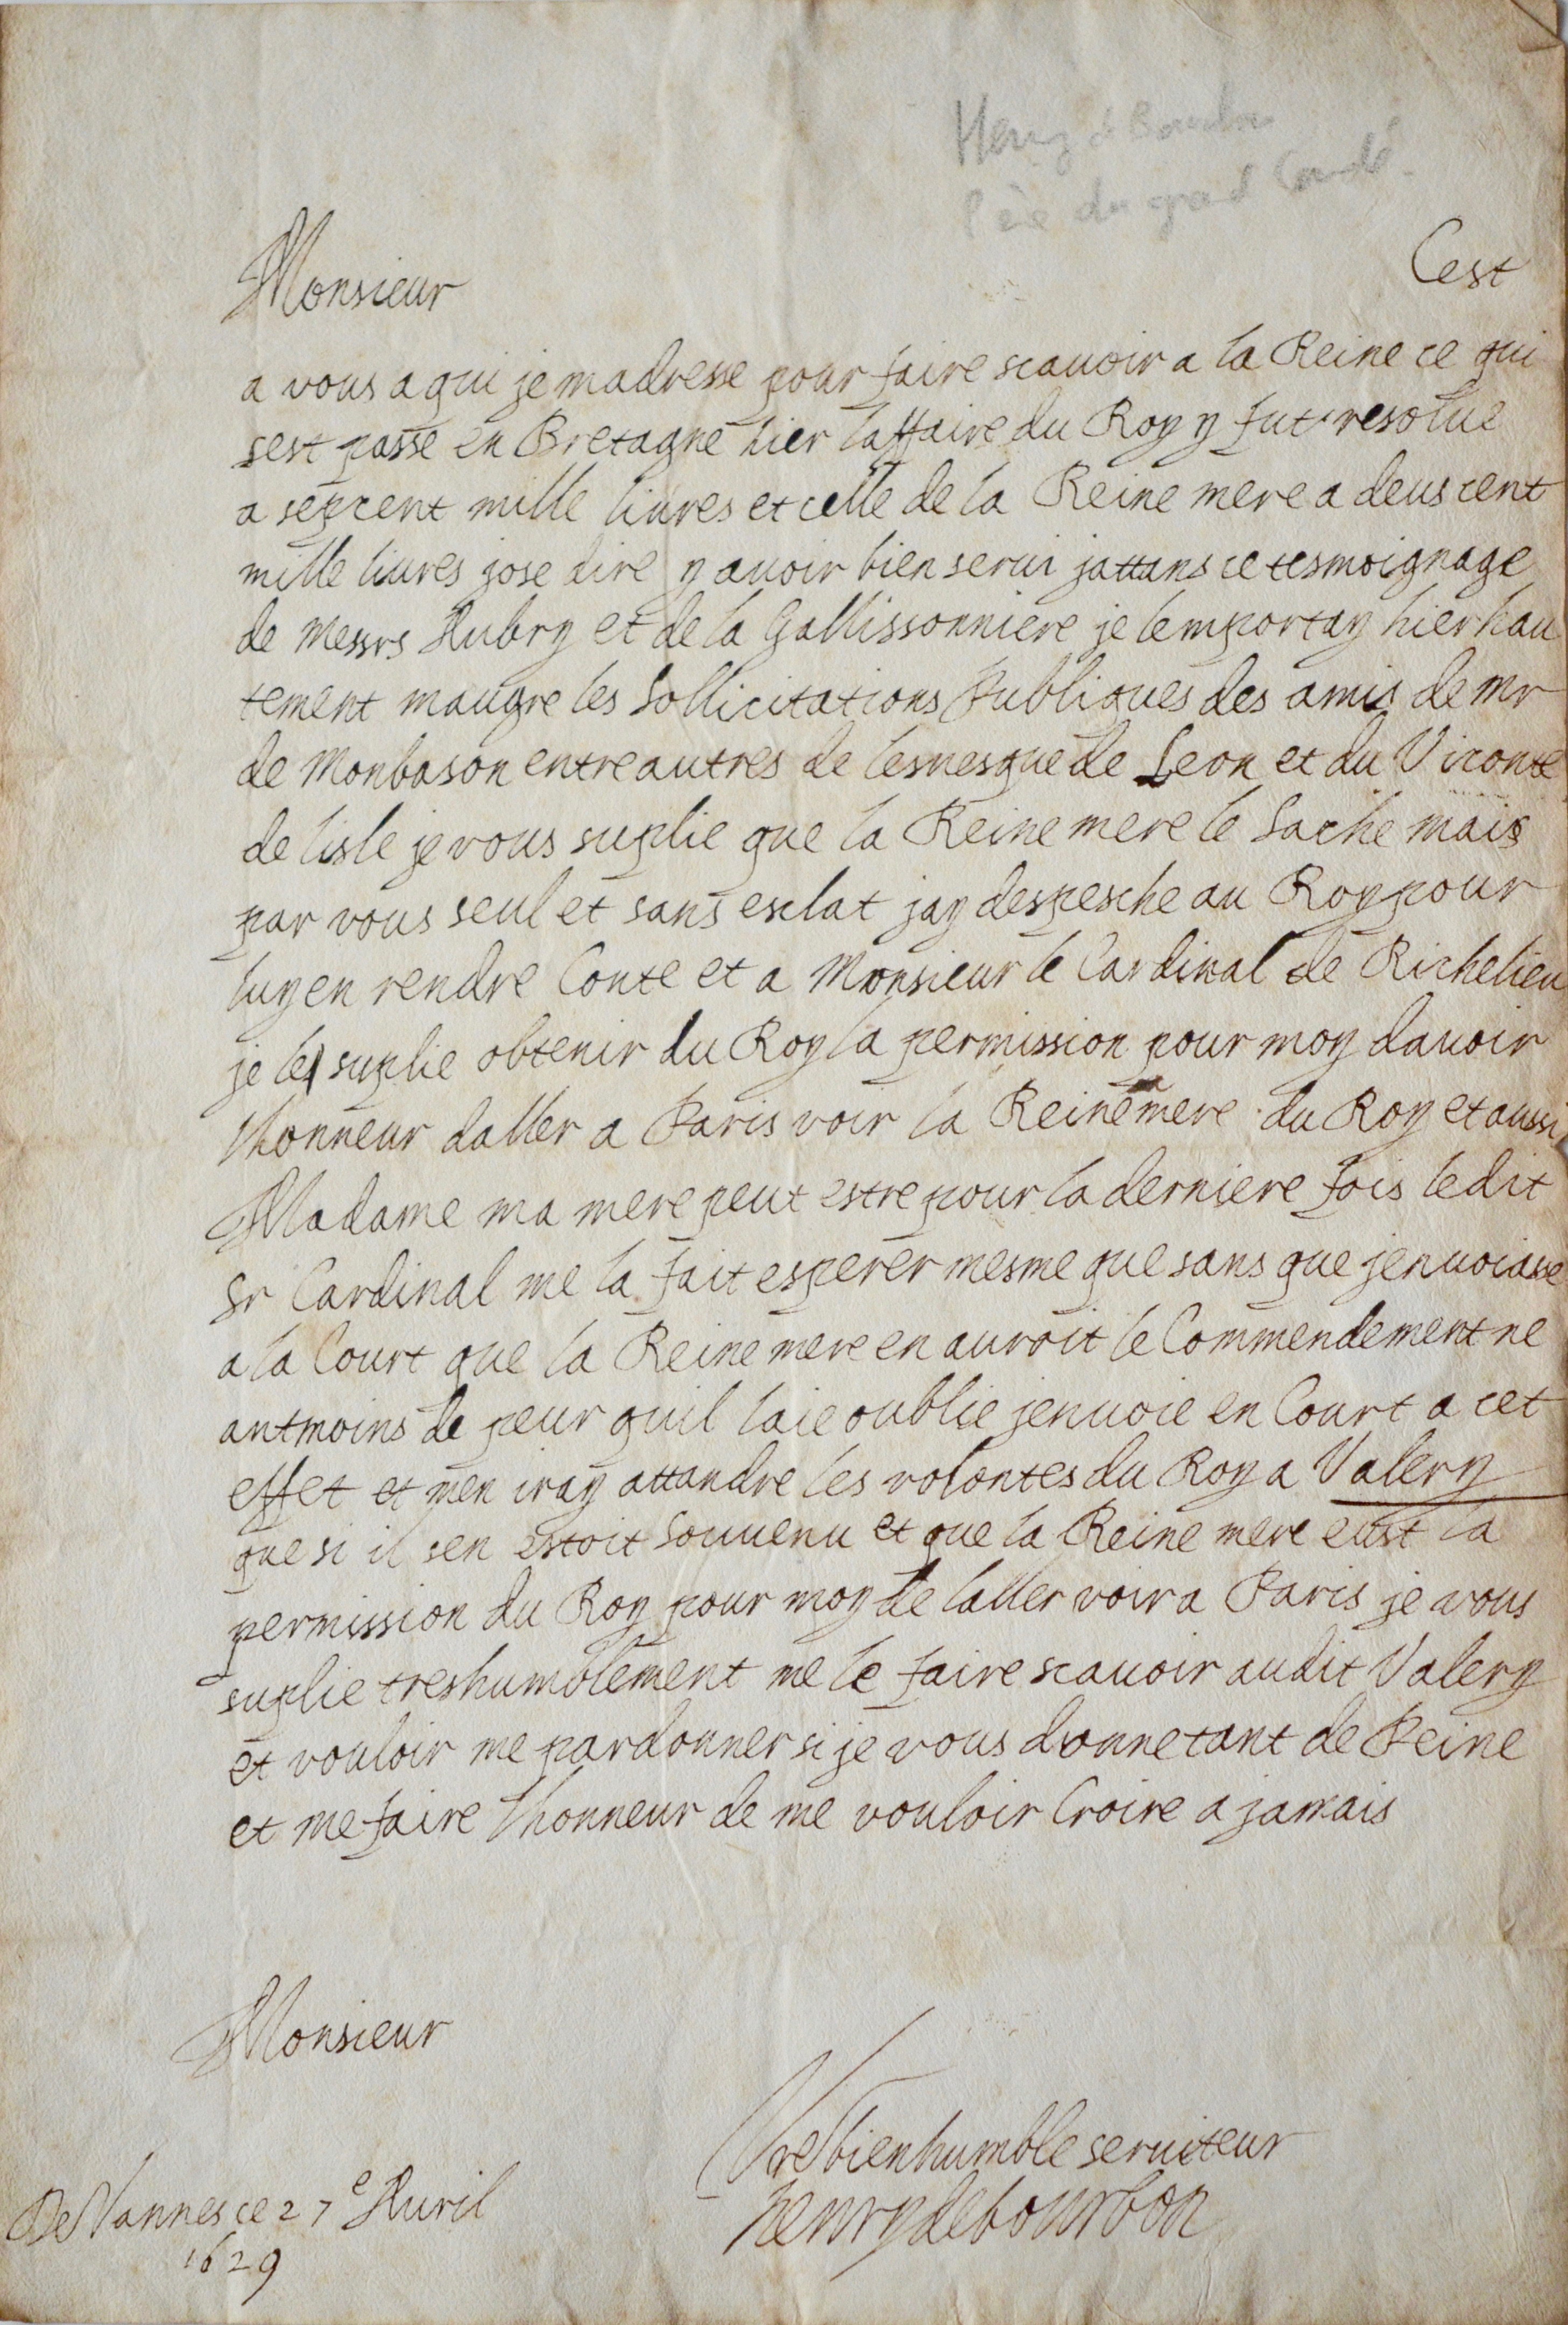 Henry de Bourbon
Père du grand Condé.
Monsieur
Cest
a vous a qui je madresse pour faire scauoir a la Reine ce qui
sest passe en Bretagne hier laffaire du Roy y fut resolue
a sepcent mille liures et celle de la Reine mere a deus cent
mille liures jose dire y auoir bien serui jattans ce tesmoignage
de Messrs Aubry et de la Gallissonniere je lemportay hier hau
tement maugre les Sollicitations Publiques des amis de mr
de Monbason entre autres de lesuesque de Leon et du Viconte
de lisle je vous suplie que la Reine mere le Sache mais
par vous seul et sans esclat jay despesche au Roy pour
luy en rendre Conte et a Monsieur le Cardinal de Richelieu
je le suplie obtenir du Roy la permission pour moy dauoir
lhonneur daller a Paris voir la Reine mere du Roy et aussi
Madame ma mere peut estre pour la derniere fois ledit
Sr Cardinal me la fait esperer mesme que sans que jenuoiasse
a la Court que la Reine mere en auroit le Commendement ne
antmoins de peur quil laie oublie jenuoie en Court a cet
effet et men iray attandre les volontes du Roy a Valery
que si il sen estoit Souuenu et que la Reine mere eust la
permission du Roy pour moy de laller voir a Paris je vous
suplie treshumblement me le faire scauoir audit Valery
et vouloir me pardonner si je vous donne tant de Peine
et me faire lhonneur de me vouloir Croire a jamais
Monsieur
Vre bien humble seruiteur
henry de bourbon
De Vannes ce 27e Auril
1629